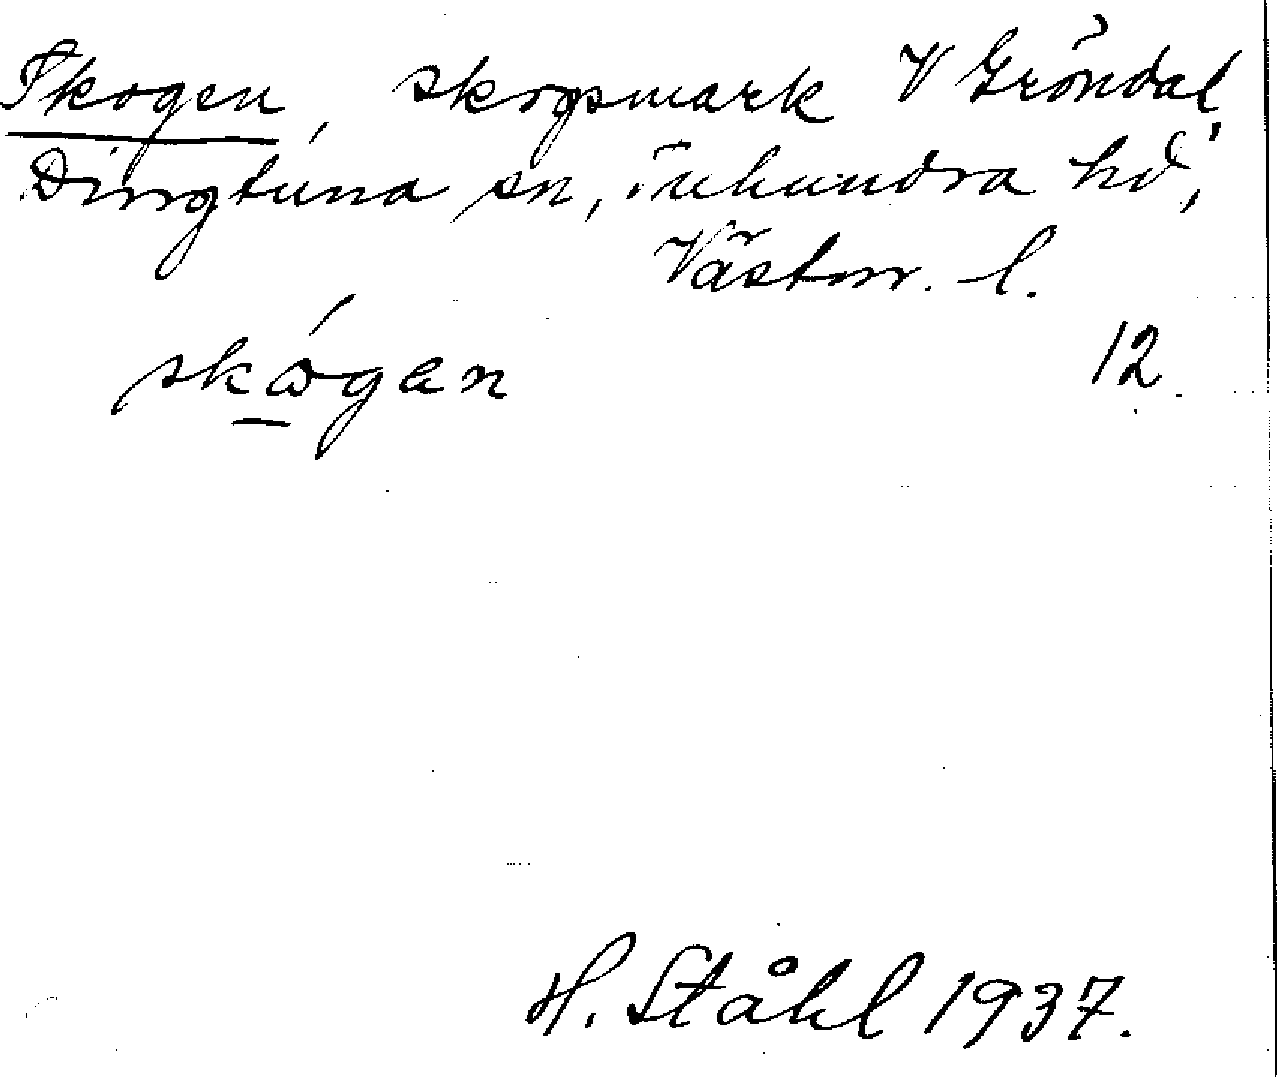 Skogen, skogsmark V Gröndal,
Dingtuna sn, Tuhundra hd,
Västm. l.
skógan
12
H. Ståhl 1937.